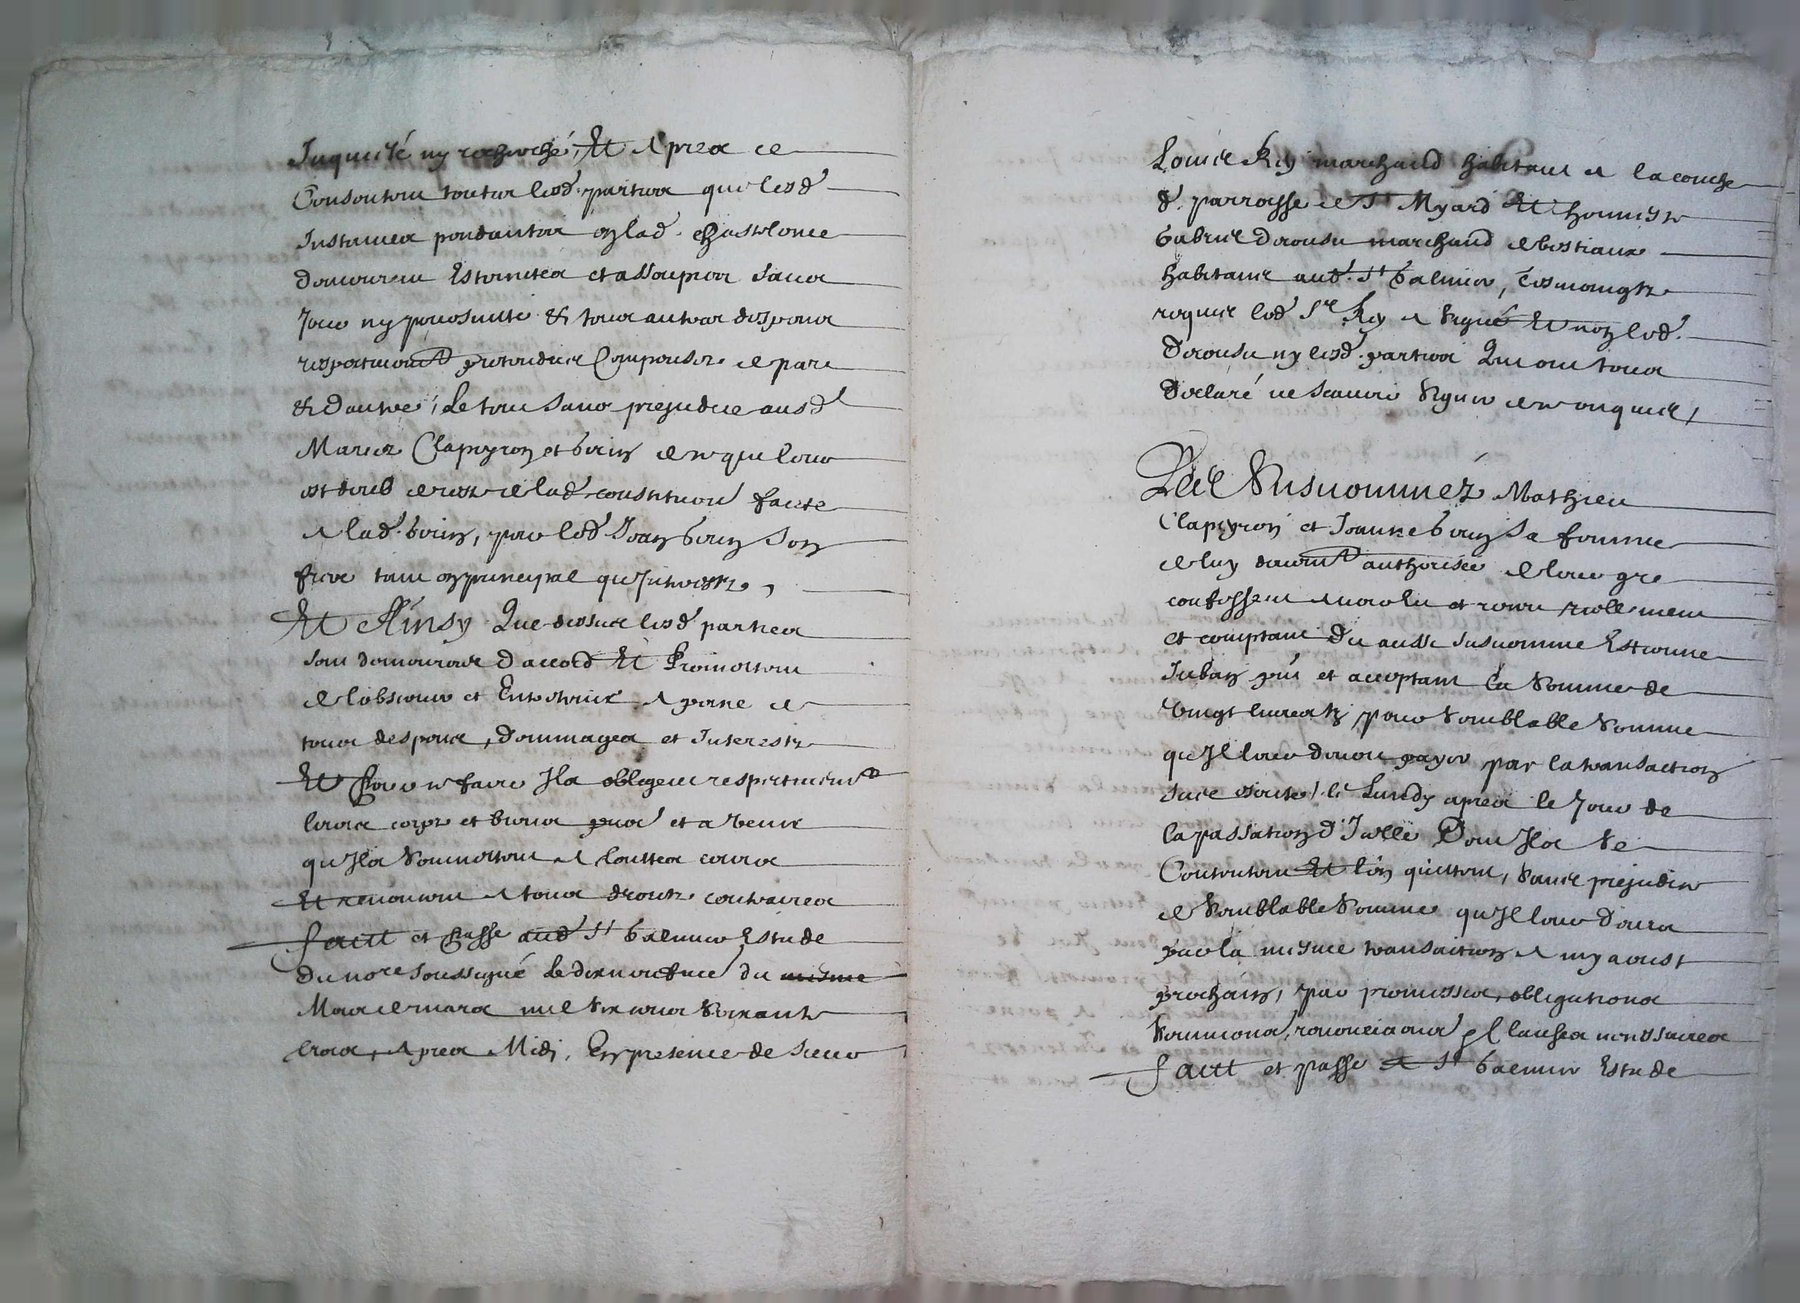 Inquieté ny recherché, Et Apres ce
Consentent toutes lesd. parties que lesd
Instances pendantes en lad. chastelenie
demeurent Esteinctes et assoupies sans
Jour ny poursuitte & tous autres despens
respectivemt pretendus Compensez de part
& dautre, Le tout sans prejudice ausd
Mariez Clapeyron et Gerin de ce que leur
est deub de reste de lad. constitution faicte
A lad. Gerin, par led. Jean Gerin son
frere tant en principal qu'Interestz,
Et Ainsy Que dessus lesd parties
sont demeurées D'accord Et Promettent
de l'observer et Entretenir A peine de
tous despens, Dommages et Interestz
Et Pour ce faire Ils obligent respectivemt
leurs corps et biens pns et a venir
qu'Ils soumettent A touttes cours
Et renoncent A tous droitz contraires
Faict et Passé aud. St Galmier Estude
Du nore soussigné Le dixneufme Du mesme
Mois de mars mil six cens soixante
trois, Apres Midi, En presence de sieur
Louis Rey marchand habitant A la couche
d. parroisse de St Myard Et honneste
Gabriel Derousu marchand de bestiaux
habitant aud. St Galmier, tesmoingtz
requis led Sr Rey A signé Et non led.
Derousu ny lesd. parties Qui ont tous
declaré ne scavoir signer de ce enquis,
Lesd Susnommez Mathieu
Clapeyron et Jeanne Gerin sa femme
de luy deuemt authorisée de leur gré
confessent avoir eu et receu reellement
et comptant Du aussi susnommé Estienne
Juban pnt et acceptant la somme de
vingt livres tz pour semblable somme
qu'Il leur devoit payer par la transaction
sus escrite, le Lundy apres le Jour de
la passation d'Icelle Dont Ils se
Contentent Et l'en quittent, sans prejudice
de semblable somme qu'Il leur devra
par la mesme transaction A my aoust
prochain, par promesses, obligations
soumons, renonciaons & clauses necessaires
Faict et passé A St Galmier Estude